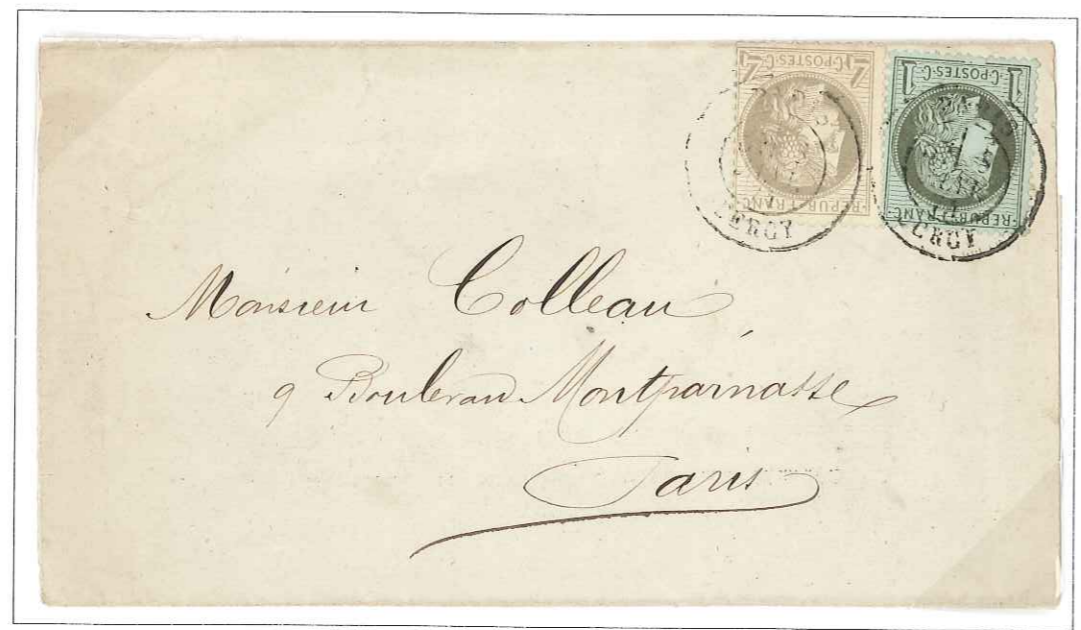 4 C·POSTES·C 4
REPUB·FRANC·
1 C·POSTES·C 1
REPUB·FRANC·
PARIS
CERCY
CERCY
Monsieur Colleau
9 Boulevard Montparnasse
Paris